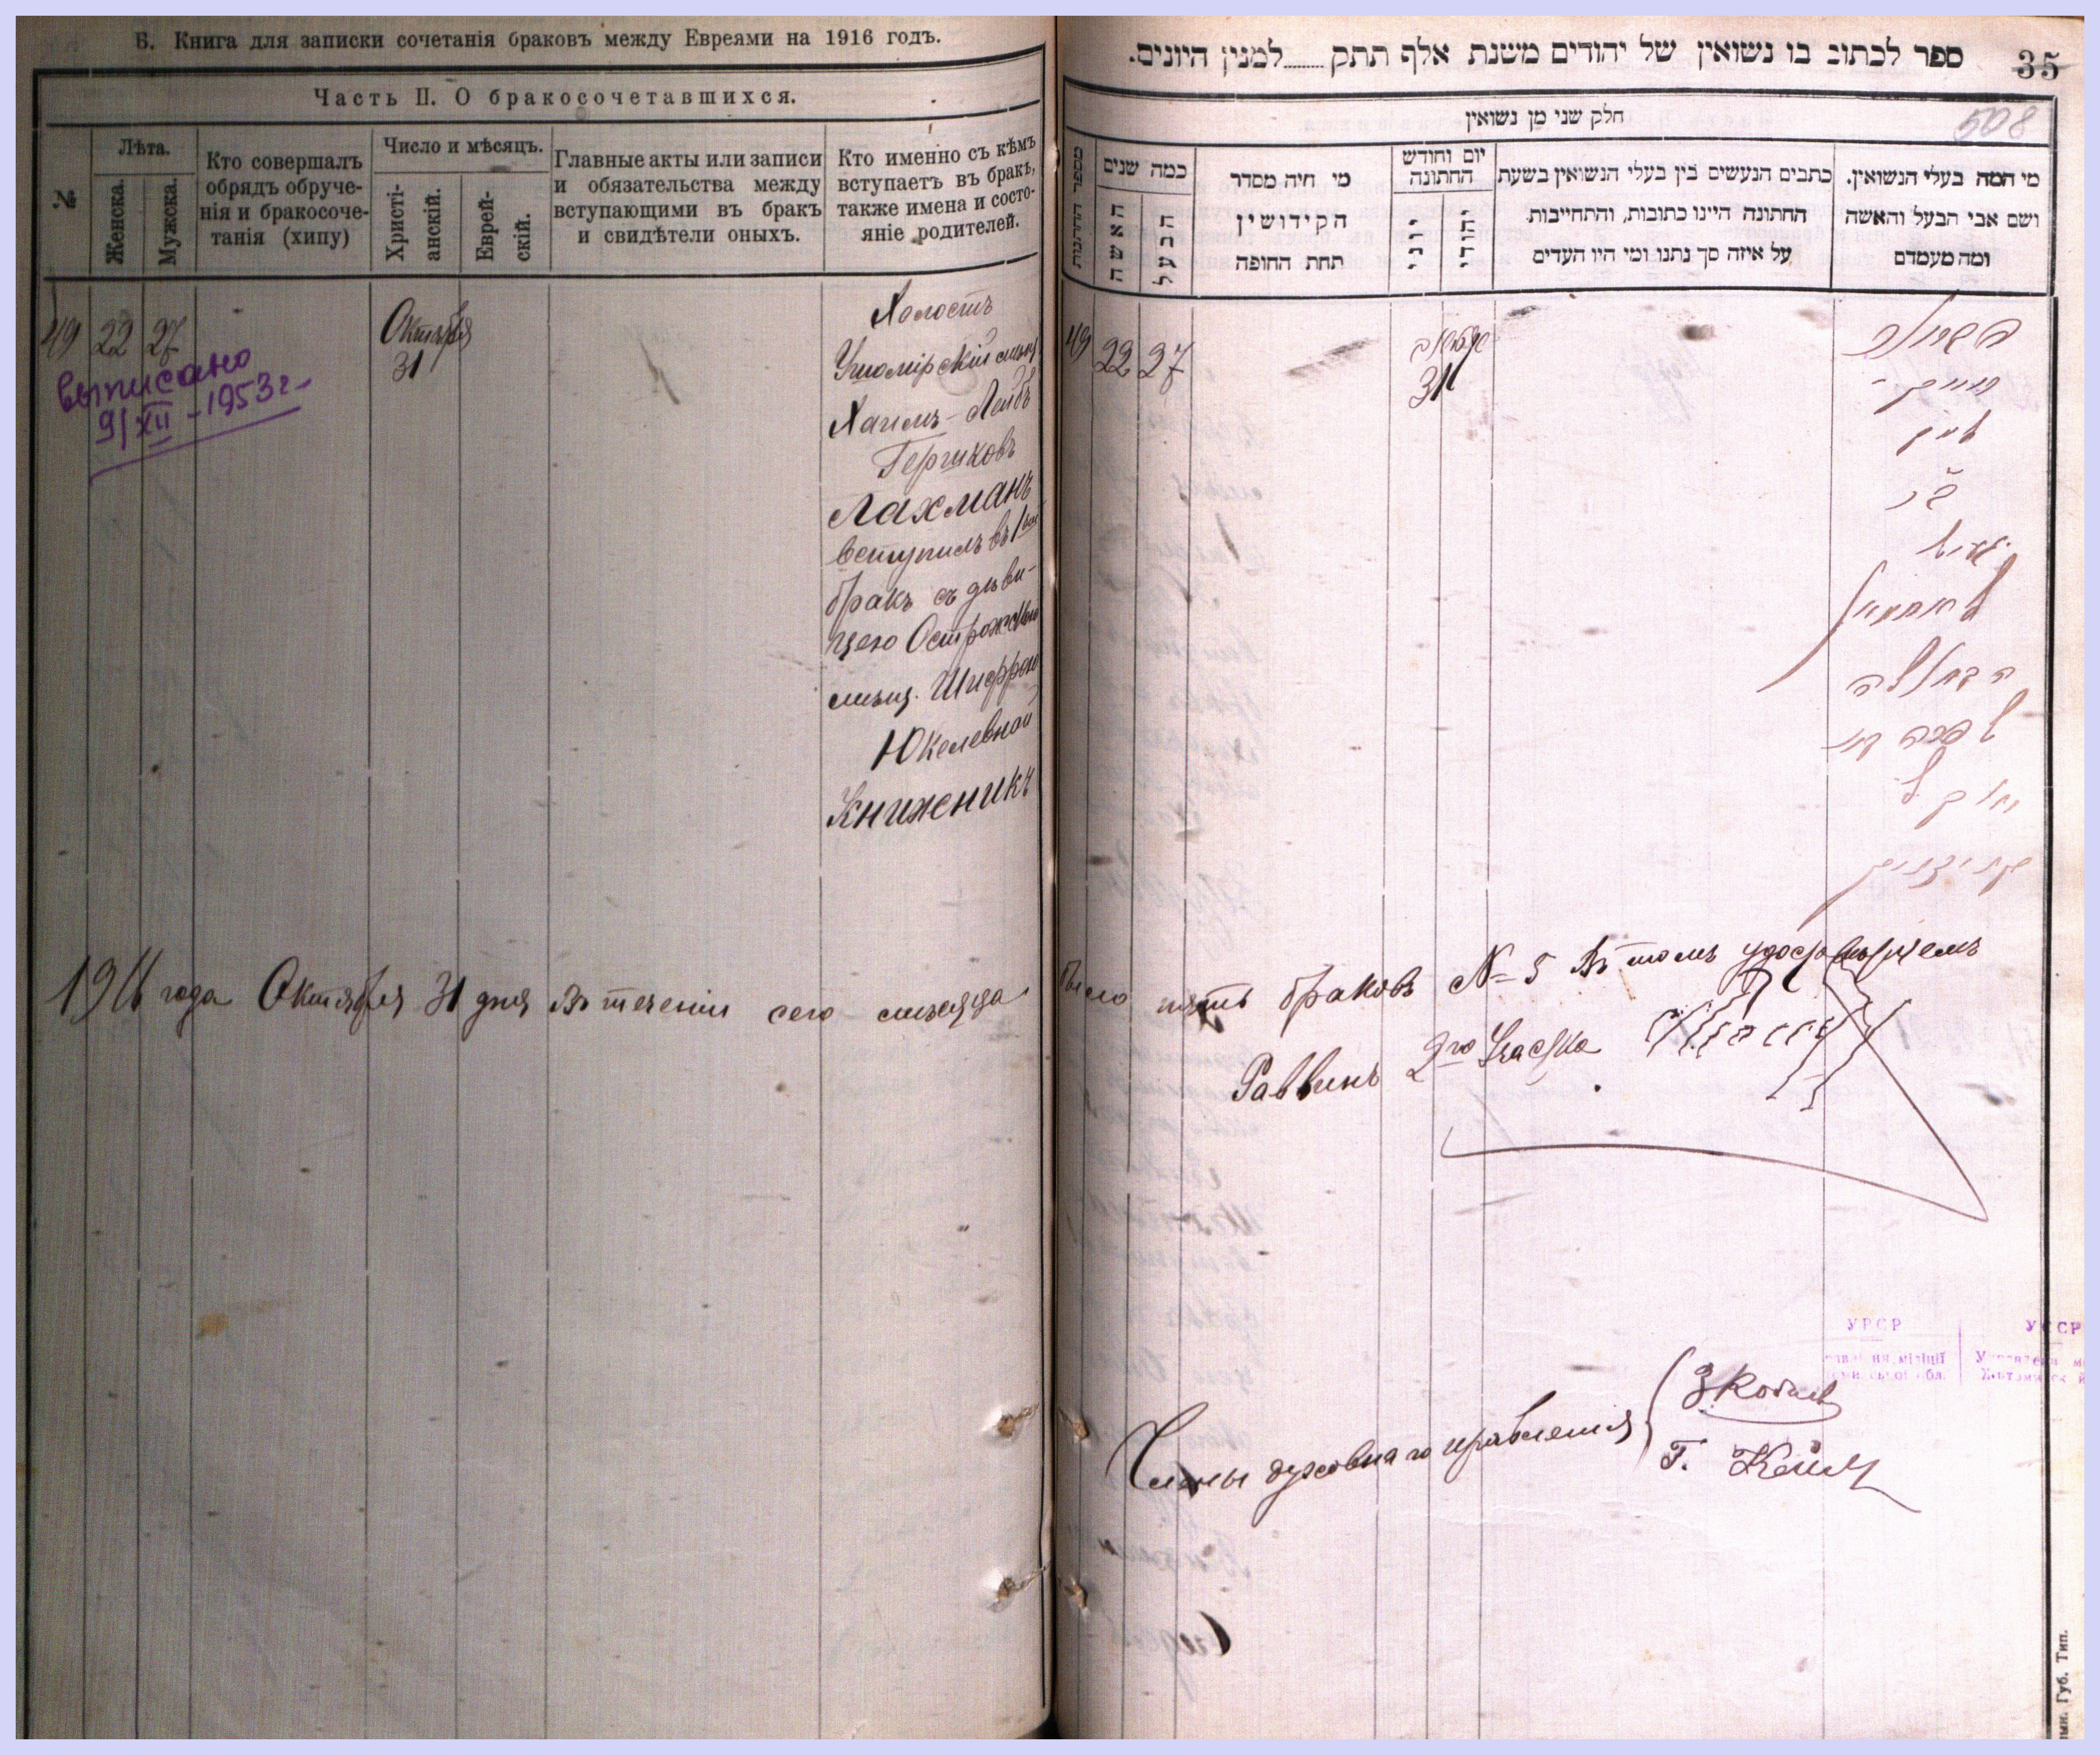 Б. Книга для записки сочетанія браковъ между Евреями на 1916 годъ.
Часть II. О бракосочетавшихся.
№
Лѣта.
Женска.
Мужска.
Кто совершалъ
обрядъ обруче-
нія и бракосоче-
танія (хипу)
Число и мѣсяцъ.
Христі-
анскій.
Еврей-
скій.
Главные акты или записи
и обязательства между
вступающими въ бракъ
и свидѣтели оныхъ.
Кто именно съ кѣмъ
вступаетъ въ бракъ,
также имена и состо-
яніе родителей.
49 22 27
Октября
31
выписано
9/XII - 1953 г-
Холостъ
Ушомірскій мѣщ
Хаимъ-Лейбъ
Гершковъ
Лахманъ
вступилъ въ 1ый
бракъ съ дѣви-
цею Острожскою
мѣщ. Шифрою
Юкелевной
Книженикъ
1916 года Октября 31 дня Въ теченіи сего мѣсяца
ספר לכתוב בו נשואין של יהודים משנת אלף תתק........למנין היונים.
35
508
חלק שני מן נשואין
מספר החתונות
כמה שנים
האשה
הבעל
מי היה מסדר
הקידושין
תחת החופה
יום וחודש
החתונה
יוני
יהודי
כתבים הנעשים בין בעלי הנשואין בשעת
החתונה היינו כתובות, והתחייבות.
על איזה סך נתנו ומי היו העדים
מי המה בעלי הנשואין.
ושם אבי הבעל והאשה
ומה מעמדם
49 22 27
31
חיים -
לייב
בר
הירש
לאחמאן
הבתולה
שפרה
יוקל
было пять браковъ № 5 Въ томъ удостовѣряемъ
Раввинъ 2го Участка
Члены духовнаго правленія
Г.
УРСР
міліції
обл.
УССР
Губ. Тип.